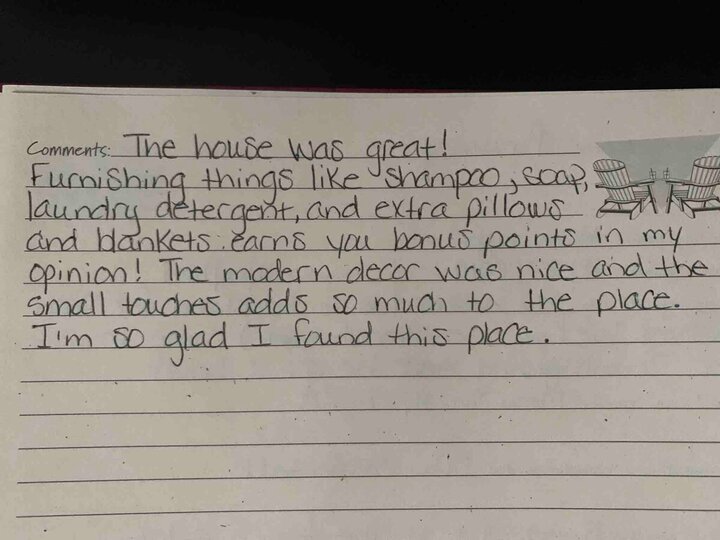 Comments: The house was great!
Furnishing things like shampoo, soap,
laundry detergent, and extra pillows
and blankets earns you bonus points in my
opinion! The modern decor was nice and the
small touches adds so much to the place.
I'm so glad I found this place.